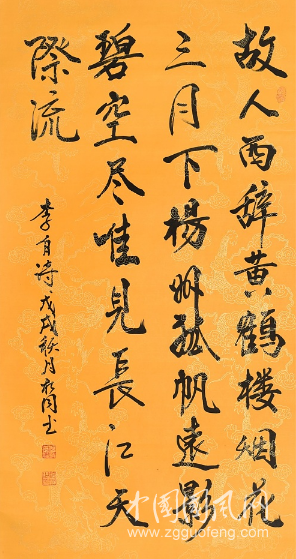 故人西辞黄鹤楼烟花
三月下杨州孤帆遠影
碧空尽唯見長江天
際流
李白诗戊戌秋月书
www.zgguoteng.com